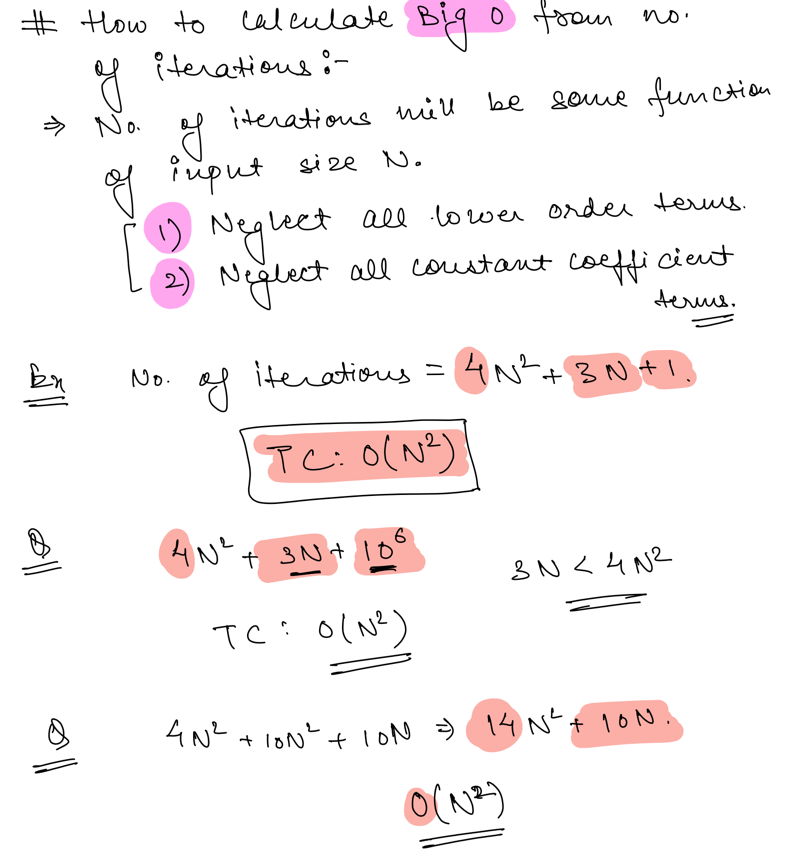 # How to calculate Big O from no.
of iterations :-
⇒ No. of iterations will be some function
of input size N.
1) Neglect all lower order terms.
2) Neglect all constant coefficient
terms.
Ex No. of iterations = 4N² + 3N + 1.
TC: O(N²)
Q 4N² + 3N + 10⁶ 3N < 4N²
TC: O(N²)
Q 4N² + 10N² + 10N ⇒ 14N² + 10N.
O(N²)